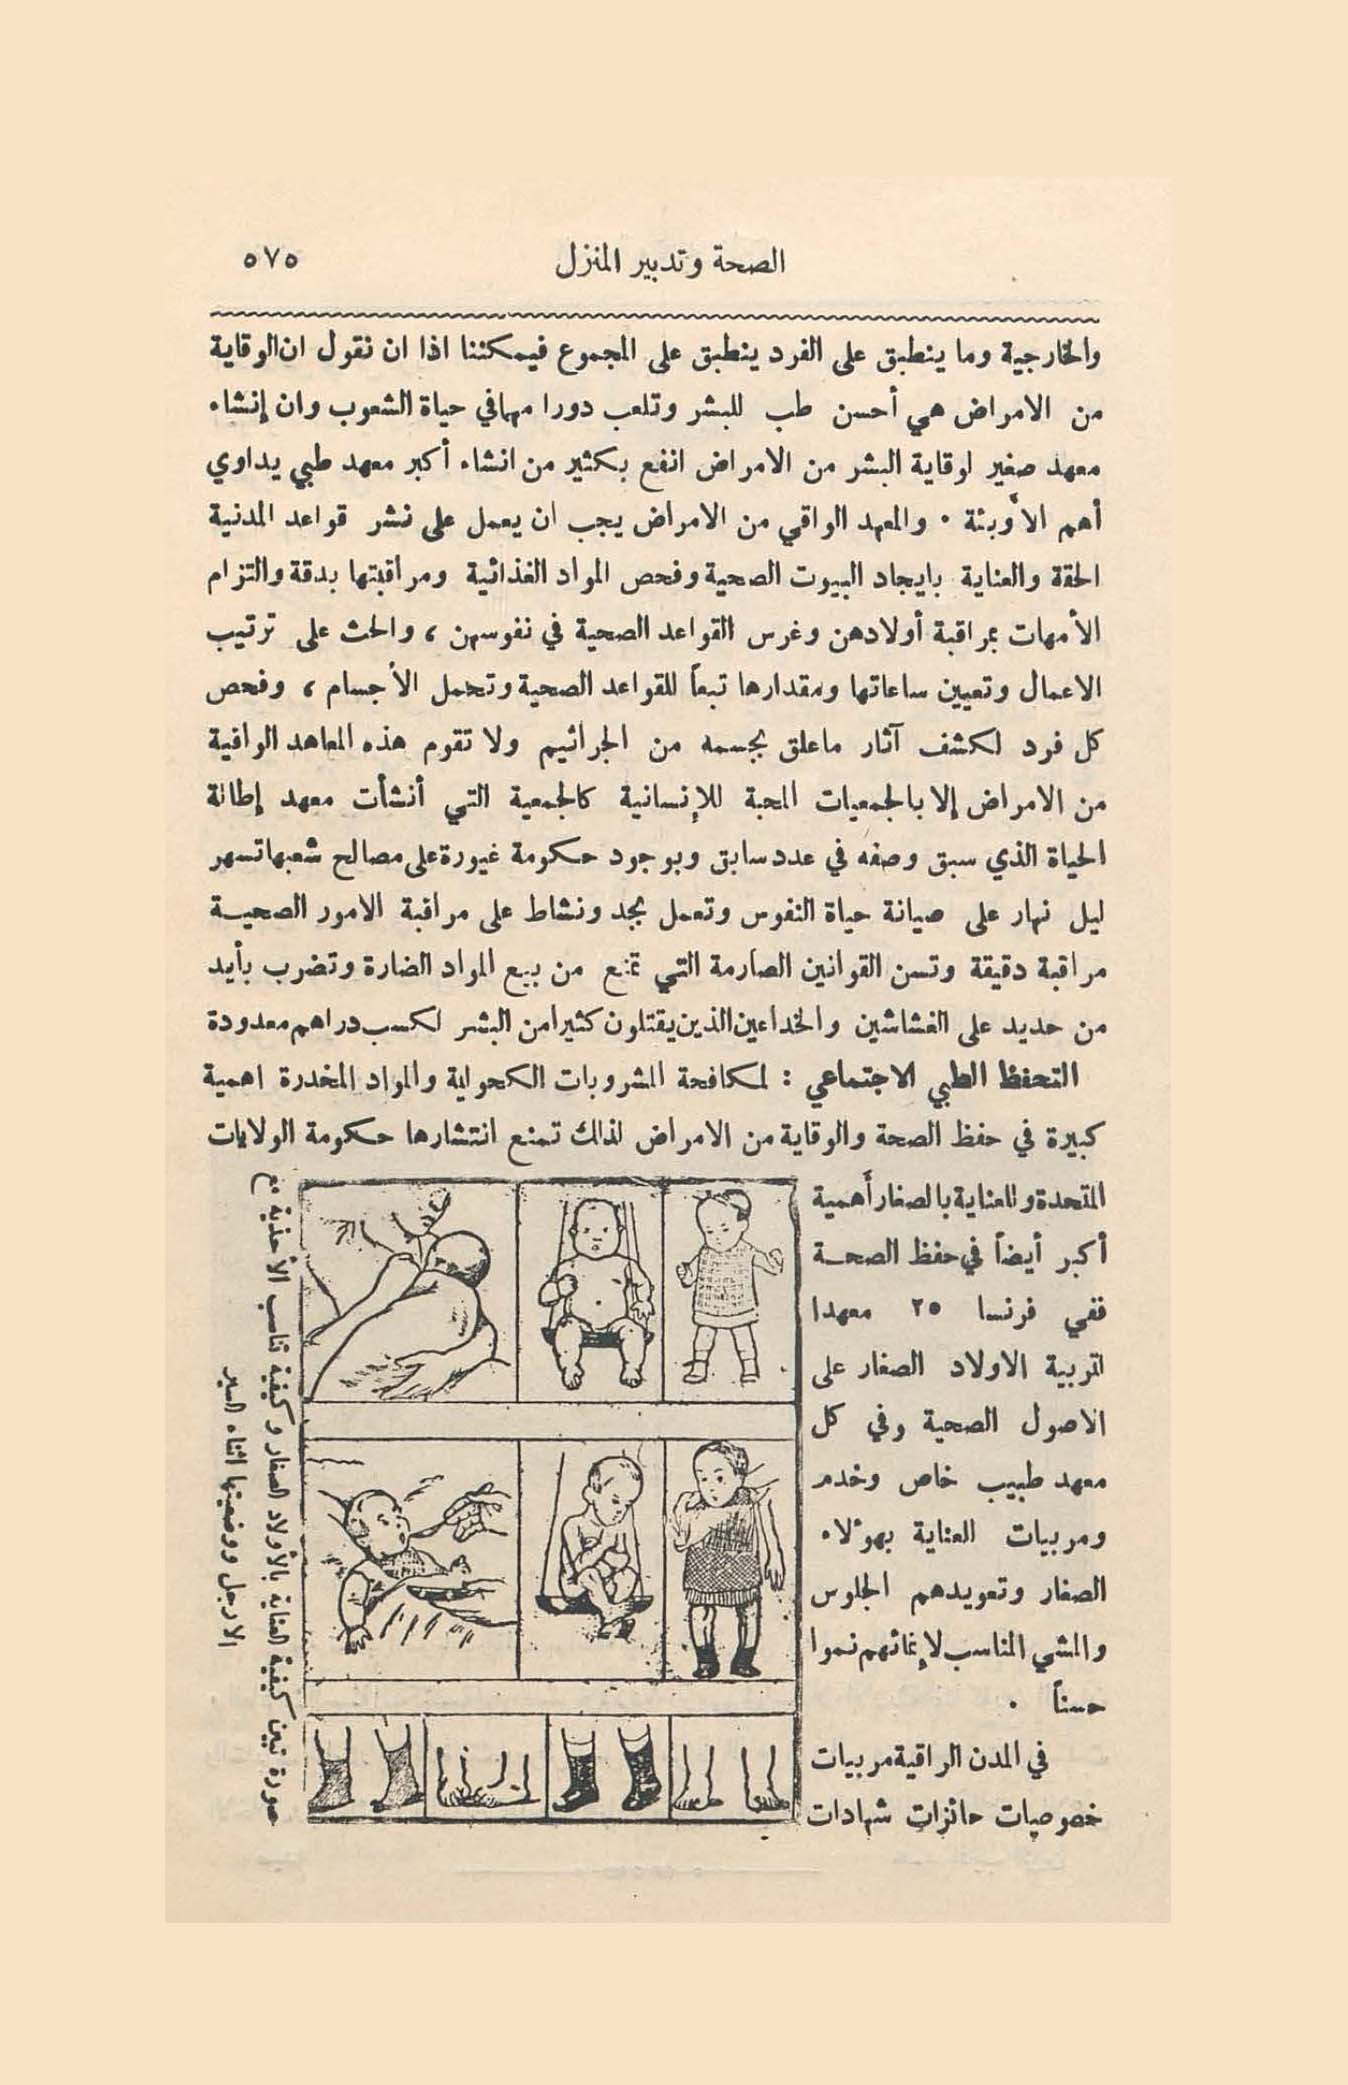 الصحة وتدبير المنزل
٥٧٥
والخارجية وما ينطبق على الفرد ينطبق على المجموع فيمكننا اذا ان نقول ان الوقاية
من الامراض هي أحسن طب للبشر وتلعب دورا مهما في حياة الشعوب وان إنشاء
معهد صغير لوقاية البشر من الامراض انفع بكثير من انشاء أكبر معهد طبي يداوي
أهم الأوبئة . والمعهد الواقي من الامراض يجب ان يعمل على نشر قواعد المدنية
الحقة والعناية بايجاد البيوت الصحية وفحص المواد الغذائية ومراقبتها بدقة والتزام
الأمهات بمراقبة أولادهن وغرس القواعد الصحية في نفوسهن ، والحث على ترتيب
الاعمال وتعيين ساعاتها ومقدارها تبعاً للقواعد الصحية وتحمل الأجسام ، وفحص
كل فرد لكشف آثار ماعلق بجسمه من الجراثيم ولا تقوم هذه المعاهد الواقية
من الامراض إلا بالجمعيات المحبة للإنسانية كالجمعية التي أنشأت معهد إطالة
الحياة الذي سبق وصفه في عدد سابق وبوجود حكومة غيورة على مصالح شعبها تسهر
ليل نهار على صيانة حياة النفوس وتعمل بجد ونشاط على مراقبة الامور الصحية
مراقبة دقيقة وتسن القوانين الصارمة التي تمنع من بيع المواد الضارة وتضرب بأيد
من حديد على الغشاشين والخداعين الذين يقتلون كثيرا من البشر لكسب دراهم معدودة
التحفظ الطبي الاجتماعي : لمكافحة المشروبات الكحولية والمواد المخدرة اهمية
كبيرة في حفظ الصحة والوقاية من الامراض لذلك تمنع انتشارها حكومة الولايات
المتحدة وللعناية بالصغار أهمية
أكبر أيضاً في حفظ الصحة
ففي فرنسا ٢٥ معهدا
لتربية الاولاد الصغار على
الاصول الصحية وفي كل
معهد طبيب خاص وخدم
ومربيات العناية بهؤلاء
الصغار وتعويدهم الجلوس
والمشي المناسب لإنمائهم نموا
حسناً .
في المدن الراقية مربيات
خصوصيات حائزات شهادات
صورة تبين كيفية العناية بالأولاد الصغار وكيفية تناسب الأحذية مع
الارجل ووضعيتها اثناء السير